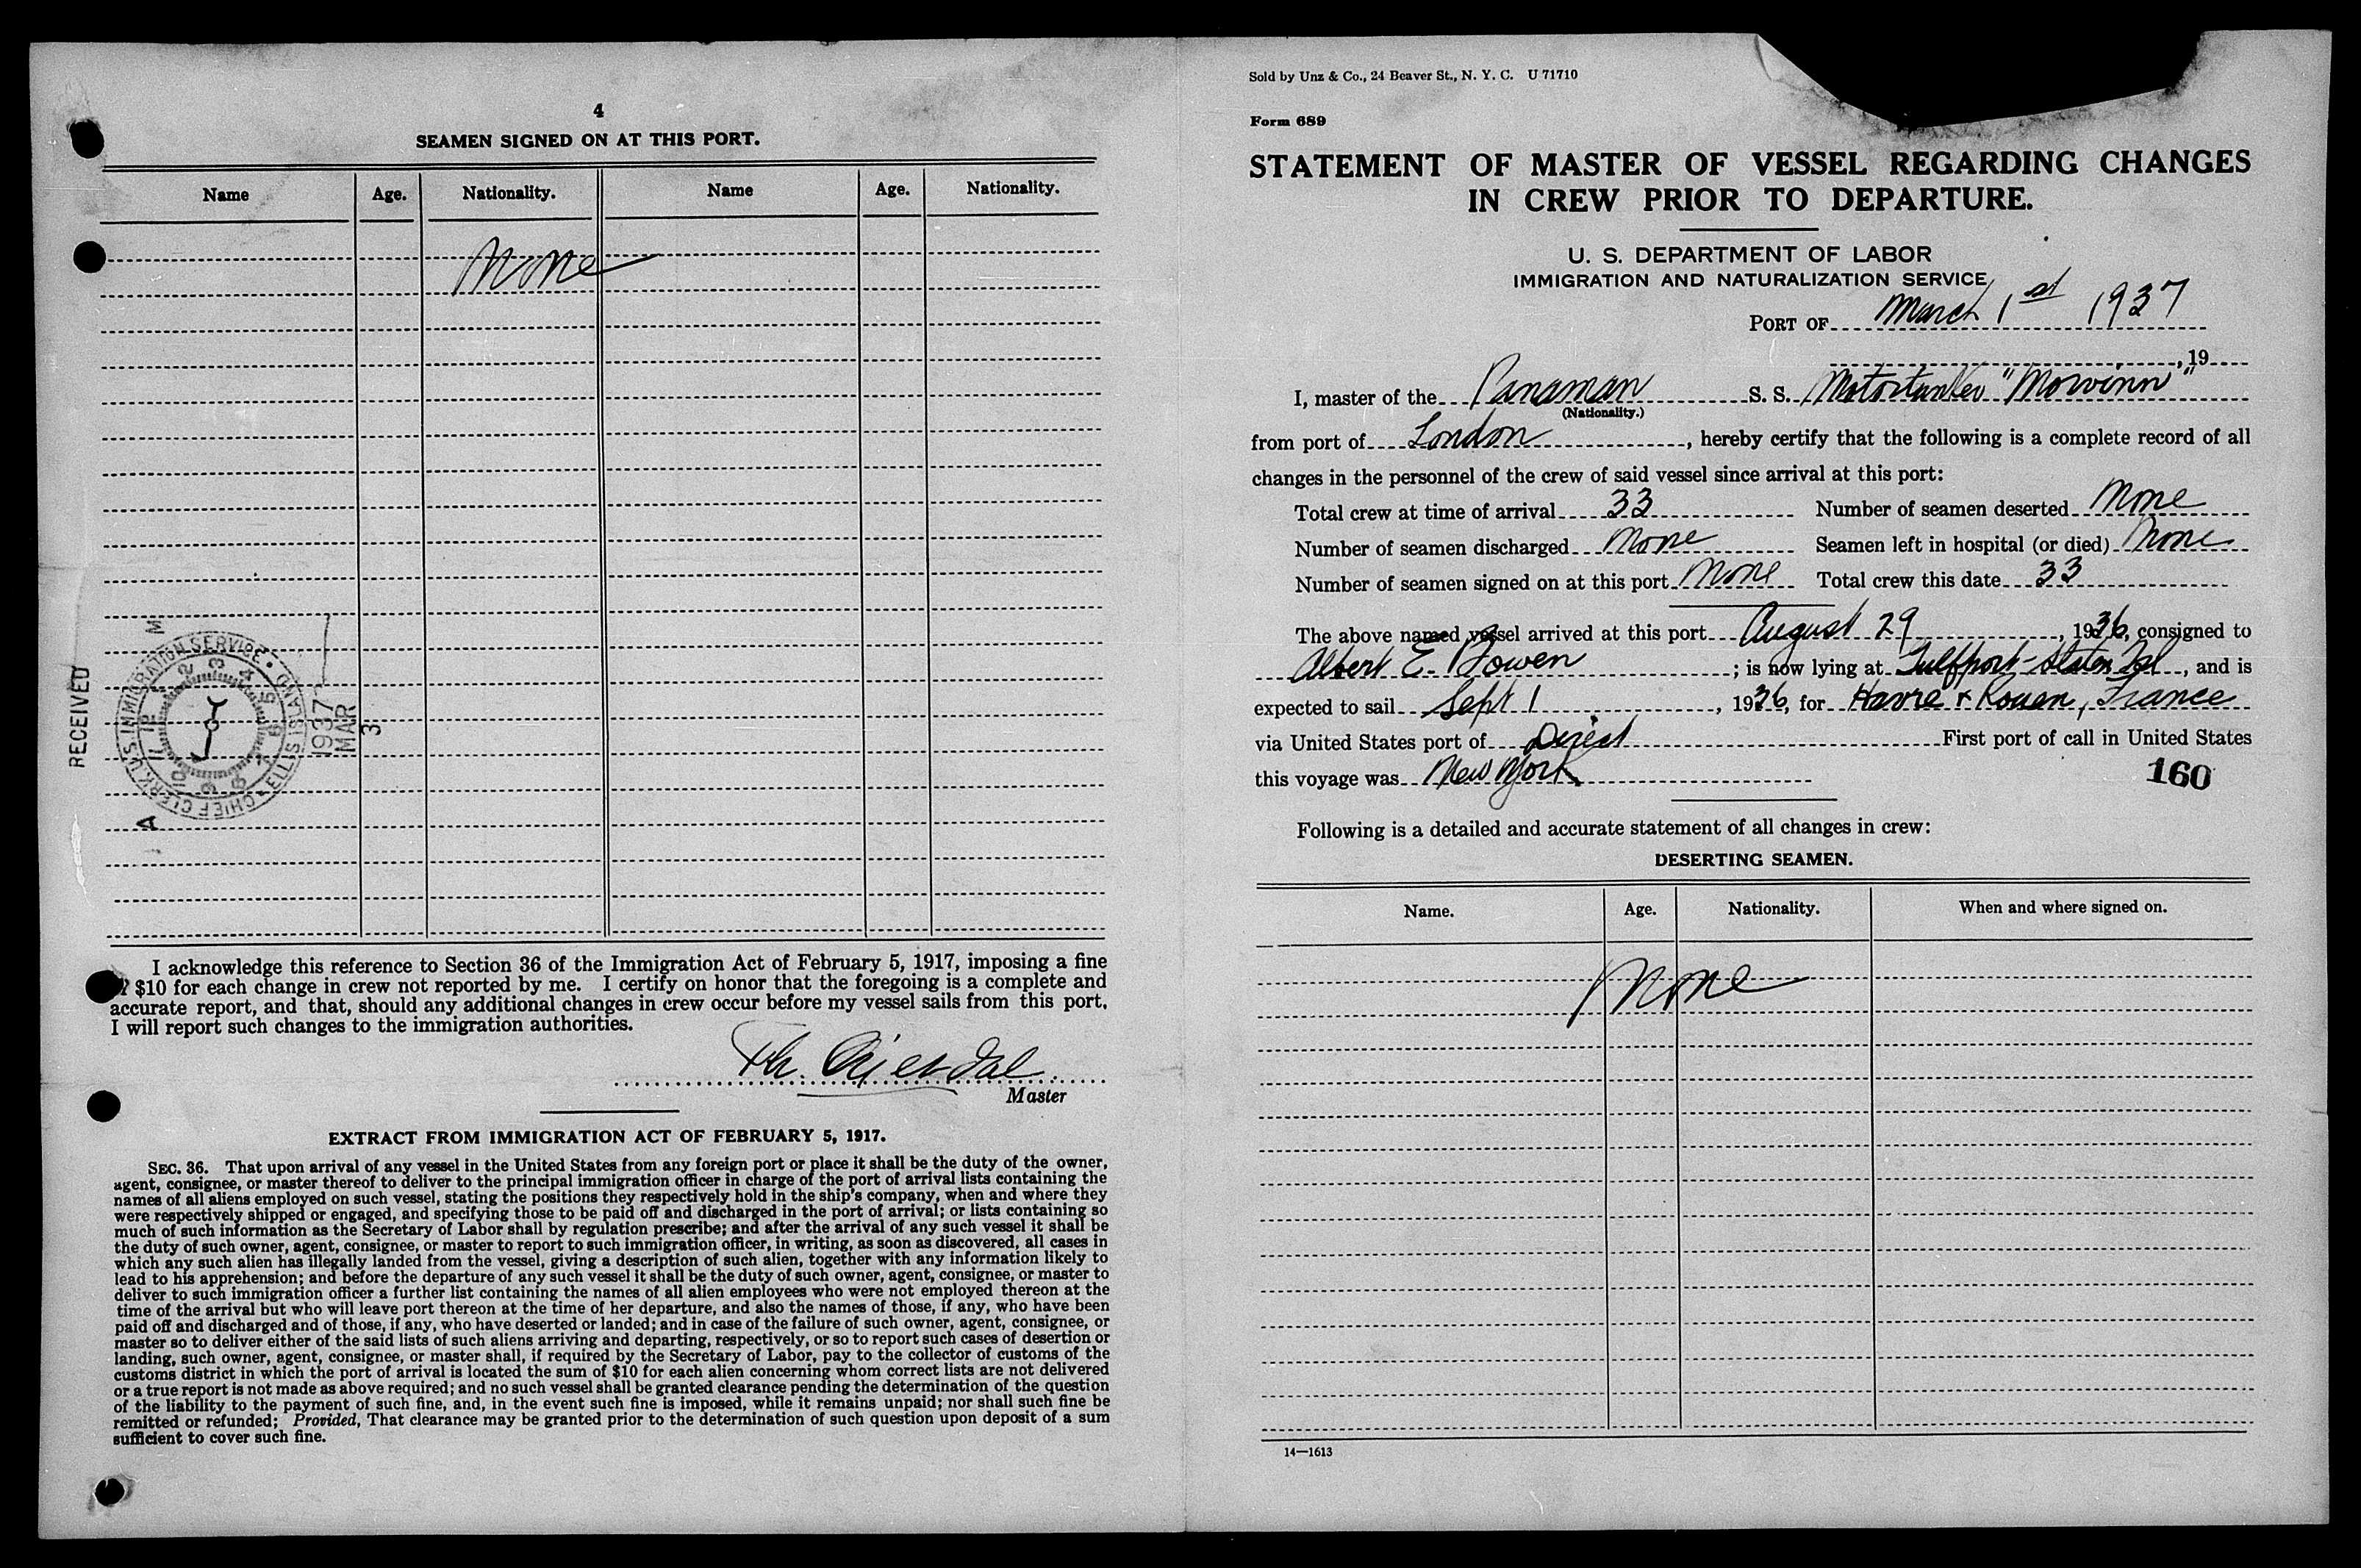 4
SEAMEN SIGNED ON AT THIS PORT.
Name Age. Nationality. Name Age. Nationality.
None
RECEIVED
CHIEF CLERK U.S. IMMIGRATION SERVICE • ELLIS ISLAND •
1937 MAR 3
A M
I acknowledge this reference to Section 36 of the Immigration Act of February 5, 1917, imposing a fine
$10 for each change in crew not reported by me. I certify on honor that the foregoing is a complete and
accurate report, and that, should any additional changes in crew occur before my vessel sails from this port,
I will report such changes to the immigration authorities.
Th.
Master
EXTRACT FROM IMMIGRATION ACT OF FEBRUARY 5, 1917.
SEC. 36. That upon arrival of any vessel in the United States from any foreign port or place it shall be the duty of the owner,
agent, consignee, or master thereof to deliver to the principal immigration officer in charge of the port of arrival lists containing the
names of all aliens employed on such vessel, stating the positions they respectively hold in the ship's company, when and where they
were respectively shipped or engaged, and specifying those to be paid off and discharged in the port of arrival; or lists containing so
much of such information as the Secretary of Labor shall by regulation prescribe; and after the arrival of any such vessel it shall be
the duty of such owner, agent, consignee, or master to report to such immigration officer, in writing, as soon as discovered, all cases in
which any such alien has illegally landed from the vessel, giving a description of such alien, together with any information likely to
lead to his apprehension; and before the departure of any such vessel it shall be the duty of such owner, agent, consignee, or master to
deliver to such immigration officer a further list containing the names of all alien employees who were not employed thereon at the
time of the arrival but who will leave port thereon at the time of her departure, and also the names of those, if any, who have been
paid off and discharged and of those, if any, who have deserted or landed; and in case of the failure of such owner, agent, consignee, or
master so to deliver either of the said lists of such aliens arriving and departing, respectively, or so to report such cases of desertion or
landing, such owner, agent, consignee, or master shall, if required by the Secretary of Labor, pay to the collector of customs of the
customs district in which the port of arrival is located the sum of $10 for each alien concerning whom correct lists are not delivered
or a true report is not made as above required; and no such vessel shall be granted clearance pending the determination of the question
of the liability to the payment of such fine, and, in the event such fine is imposed, while it remains unpaid; nor shall such fine be
remitted or refunded; Provided, That clearance may be granted prior to the determination of such question upon deposit of a sum
sufficient to cover such fine.
Sold by Unz & Co., 24 Beaver St., N. Y. C. U 71710
Form 689
STATEMENT OF MASTER OF VESSEL REGARDING CHANGES
IN CREW PRIOR TO DEPARTURE.
U. S. DEPARTMENT OF LABOR
IMMIGRATION AND NATURALIZATION SERVICE
PORT OF March 1st 1937
, 19
I, master of the Panaman S. S. Motortanker "Morvinn"
(Nationality.)
from port of London, hereby certify that the following is a complete record of all
changes in the personnel of the crew of said vessel since arrival at this port:
Total crew at time of arrival 33 Number of seamen deserted None
Number of seamen discharged None Seamen left in hospital (or died) None
Number of seamen signed on at this port None Total crew this date 33
The above named vessel arrived at this port August 29, 1936, consigned to
Albert E. Bowen; is now lying at Gulfport-Staten Isl, and is
expected to sail Sept 1, 1936, for Havre & Rouen, France
via United States port of Direct First port of call in United States
this voyage was New York
160
Following is a detailed and accurate statement of all changes in crew:
DESERTING SEAMEN.
Name. Age. Nationality. When and where signed on.
None
14—1613